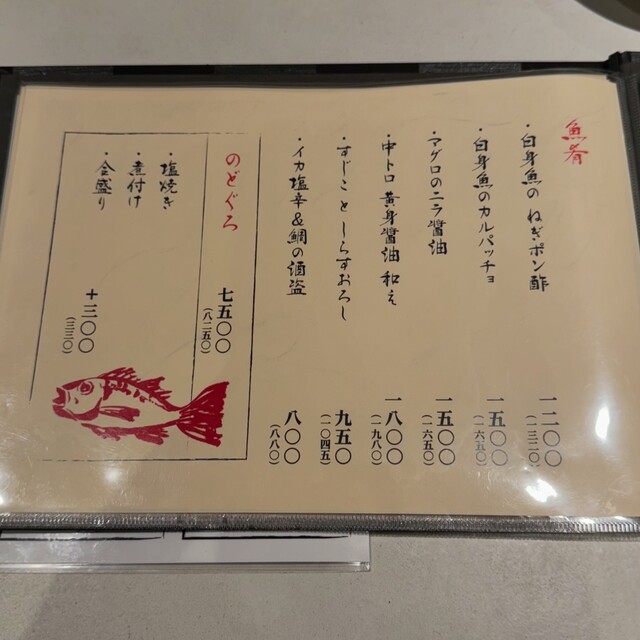 魚肴
・白身魚の ねぎポン酢
一二〇〇
(一三二〇)
・白身魚のカルパッチョ
一五〇〇
(一六五〇)
・マグロのニラ醤油
一五〇〇
(一六五〇)
・中トロ 黄身醤油 和え
一八〇〇
(一九八〇)
・すじこ と しらすおろし
九五〇
(一〇四五)
・イカ塩辛&鯛の酒盗
八〇〇
(八八〇)
のどぐろ
七五〇〇
(八二五〇)
・塩焼き
・煮付け
・合盛り
+三〇〇
(三三〇)